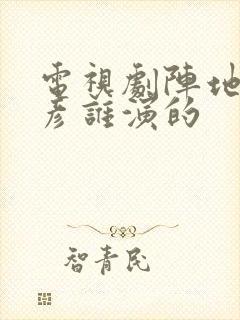 電視劇陣地
彥誰演的
智青民